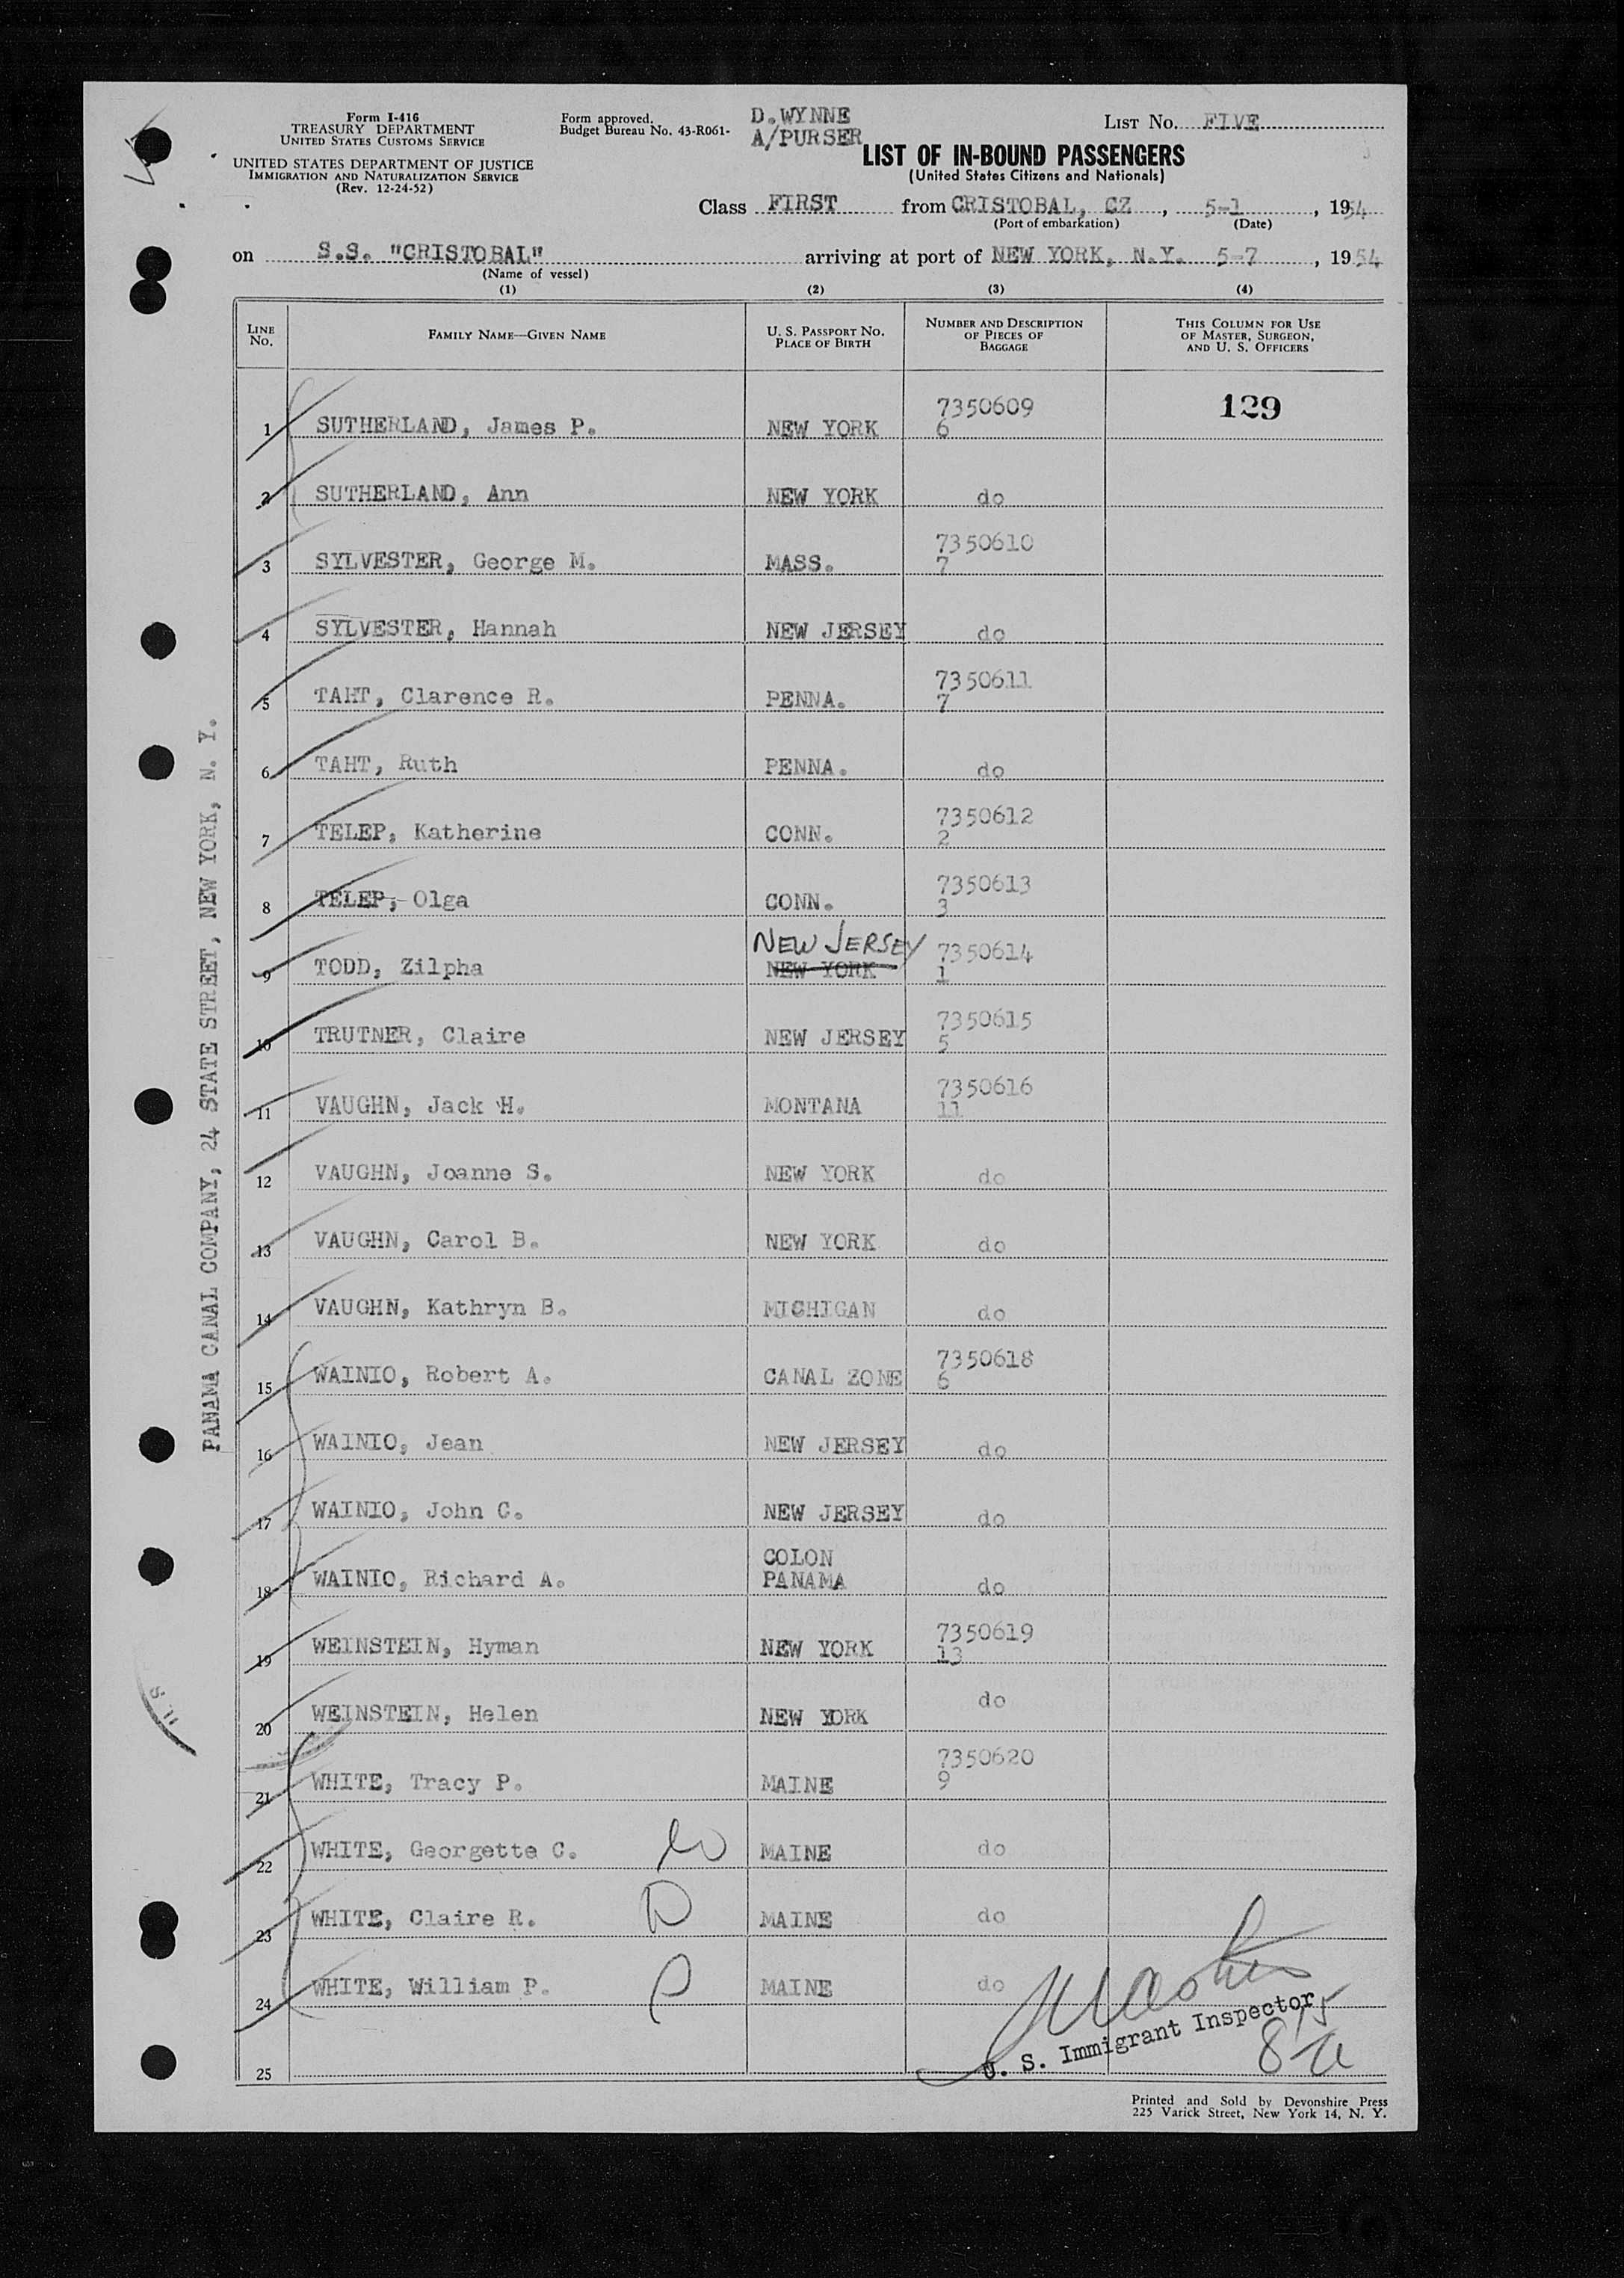 Form I-416
TREASURY DEPARTMENT
UNITED STATES CUSTOMS SERVICE
UNITED STATES DEPARTMENT OF JUSTICE
IMMIGRATION AND NATURALIZATION SERVICE
(Rev. 12-24-52)
Form approved.
Budget Bureau No. 43-R061-
D.WYNNE
A/PURSER
LIST NO. FIVE
LIST OF IN-BOUND PASSENGERS
(United States Citizens and Nationals)
Class FIRST from CRISTOBAL, CZ , 5-1 , 1954
(Port of embarkation) (Date)
on S.S. "CRISTOBAL" arriving at port of NEW YORK, N.Y. 5-7 , 1954
(Name of vessel)
(1) (2) (3) (4)
LINE NO. FAMILY NAME—GIVEN NAME U. S. PASSPORT NO. PLACE OF BIRTH NUMBER AND DESCRIPTION OF PIECES OF BAGGAGE THIS COLUMN FOR USE OF MASTER, SURGEON, AND U. S. OFFICERS
1 SUTHERLAND, James P. NEW YORK 7350609 6 129
2 SUTHERLAND, Ann NEW YORK do
3 SYLVESTER, George M. MASS. 7350610 7
4 SYLVESTER, Hannah NEW JERSEY do
5 TAHT, Clarence R. PENNA. 7350611 7
6 TAHT, Ruth PENNA. do
7 TELEP, Katherine CONN. 7350612 2
8 TELEP, Olga CONN. 7350613 3
9 TODD, Zilpha NEW JERSEY NEW YORK 7350614 1
10 TRUTNER, Claire NEW JERSEY 7350615 5
11 VAUGHN, Jack H. MONTANA 7350616 11
12 VAUGHN, Joanne S. NEW YORK do
13 VAUGHN, Carol B. NEW YORK do
14 VAUGHN, Kathryn B. MICHIGAN do
15 WAINIO, Robert A. CANAL ZONE 7350618 6
16 WAINIO, Jean NEW JERSEY do
17 WAINIO, John C. NEW JERSEY do
18 WAINIO, Richard A. COLON PANAMA do
19 WEINSTEIN, Hyman NEW YORK 7350619 13
20 WEINSTEIN, Helen NEW YORK do
21 WHITE, Tracy P. MAINE 7350620 9
22 WHITE, Georgette C. MAINE do
23 WHITE, Claire R. MAINE do
24 WHITE, William P. MAINE do
25
U. S. Immigrant Inspector
Printed and Sold by Devonshire Press
225 Varick Street, New York 14, N. Y.
PANAMA CANAL COMPANY, 24 STATE STREET, NEW YORK, N. Y.